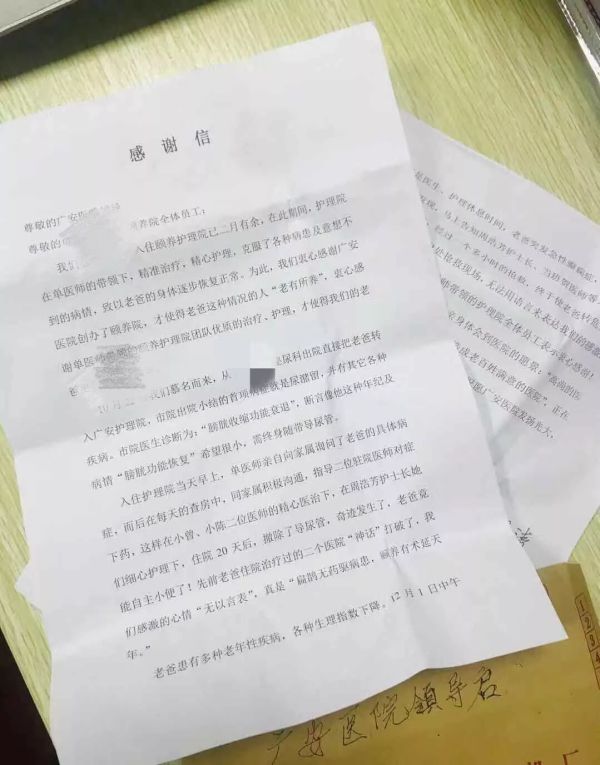 感谢信
尊敬的广安医
尊敬的 颐养院全体员工:
我们 入住颐养护理院已二月有余,在此期间,护理院
在单医师的带领下,精准治疗,精心护理,克服了各种病患及意想不
到的病情,致以老爸的身体逐步恢复正常。为此,我们衷心感谢广安
医院创办了颐养院,才使得老爸这种情况的人“老有所养”,衷心感
谢单医师带领的颐养护理院团队优质的治疗、护理,才使得我们的老
爸
10月2 我们慕名而来,从 泌尿科出院直接把老爸转
入广安护理院,市院出院小结的首项病症就是尿潴留,并有其它各种
疾病。市院医生诊断为:“膀胱收缩功能衰退”,断言像他这种年纪及
病情“膀胱功能恢复”希望很小,需终身随带导尿管。
入住护理院当天早上,单医师亲自向家属询问了老爸的具体病
症,而后在每天的查房中,同家属积极沟通,指导二位驻院医师对症
下药,这样在小曾、小陈二位医师的精心医治下,在周浩芳护士长她
们细心护理下,住院 20 天后,撤除了导尿管,奇迹发生了,老爸竟
能自主小便了!先前老爸住院治疗过的二个医院“神话”打破了,我
们感激的心情“无以言表”,真是“扁鹊无药驱病患,颐养有术延天
年。”
老爸患有多种老年性疾病,各种生理指数下降。12月1日中午
是医生、护理休息时间,老爸突发急性癫痫症,
发现,马上告知周浩芳护士长,当值班医师等
经过一个多小时的抢救,终于使老爸转危
处抢救现场,无法用语言来表达身担的感激
师带领的护理院全体员工表示衷心感谢!
亲身体会到医院的愿景:“高尚的医
成老百姓满意的医院”,正在
愿广安医院发扬光大,
广安医院領导启
1
2
3
4
厂